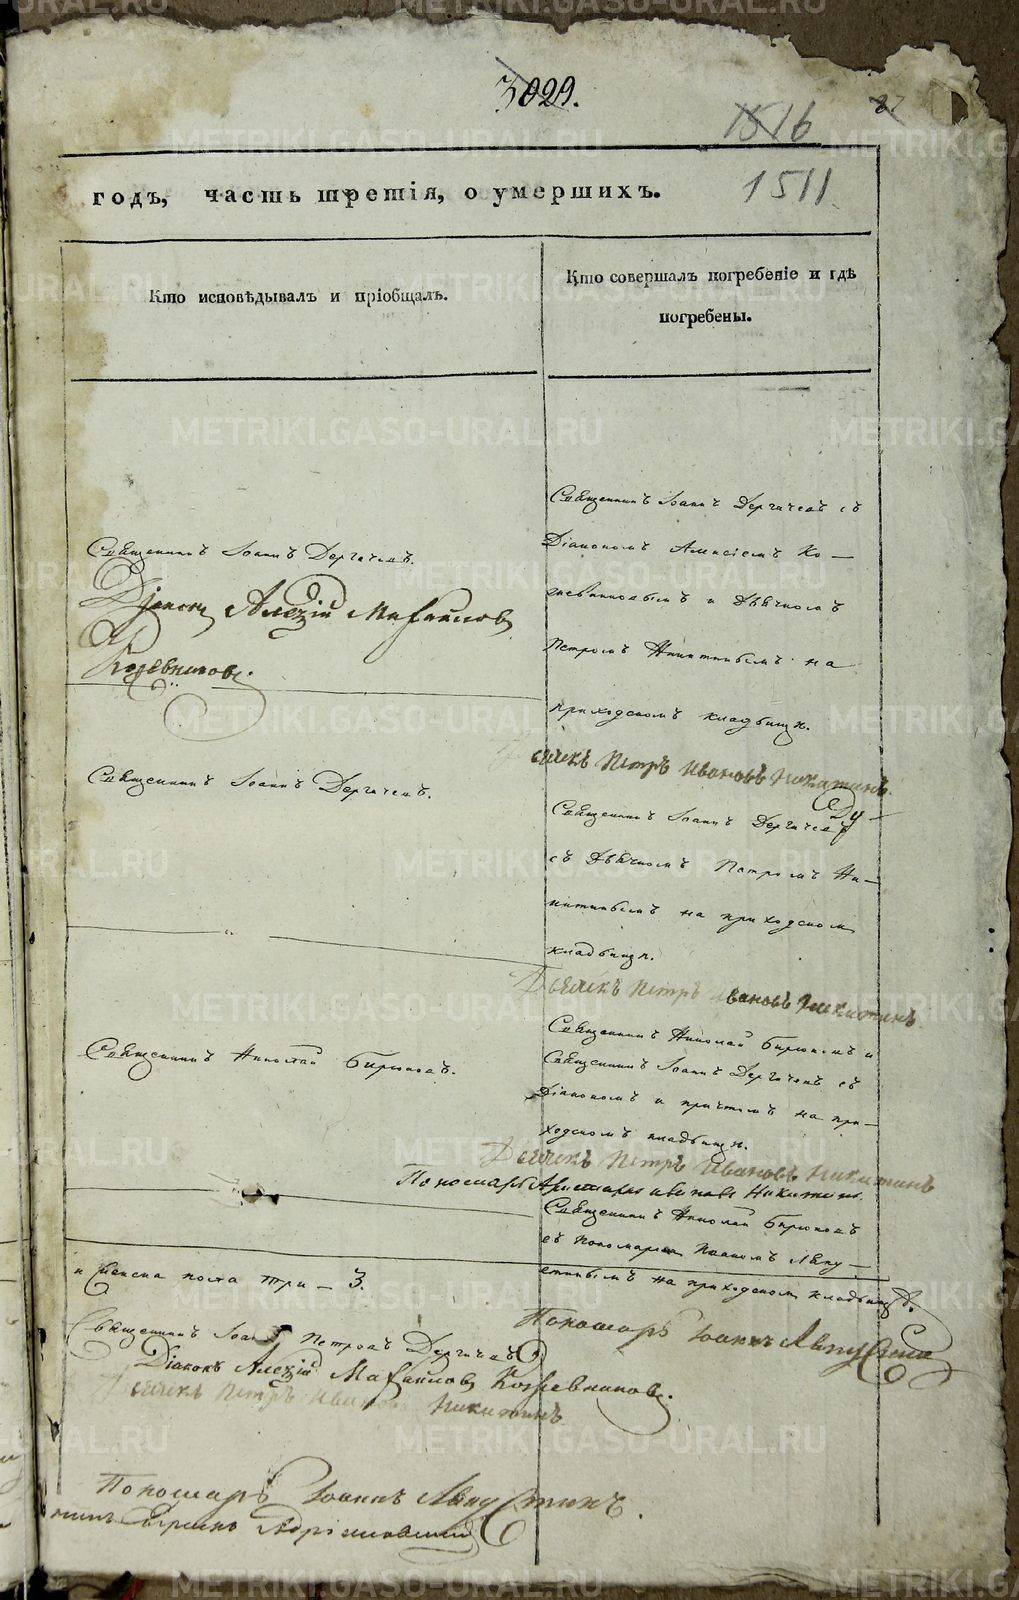 3029.
1516
27
1511
годъ, часть третія, о умершихъ.
Кто исповѣдывалъ и пріобщалъ.
Кто совершалъ погребеніе и гдѣ
погребены.
Священникъ Іоаннъ Дергачевъ.
Діаконъ Алексій Михайловъ
Кожевниковъ.
Священникъ Іоаннъ Дергачевъ съ
Діакономъ Алексіемъ Ко-
жевниковымъ и Дьячкомъ
Петромъ Никитинымъ на
приходскомъ кладбищѣ.
Дьячекъ Петръ Ивановъ Никитинъ.
Священникъ Іоаннъ Дергачевъ.
Священникъ Іоаннъ Дергачевъ
съ Дьячкомъ Петромъ Ни-
китинымъ на приходскомъ
кладбищѣ.
Дьячекъ Петръ Ивановъ Никитинъ
Священникъ Николай Бирюковъ.
Священникъ Николай Бирюковъ и
Священникъ Іоаннъ Дергачевъ съ
Діакономъ и причтомъ на при-
ходскомъ кладбищѣ.
Дьячекъ Петръ Ивановъ Никитинъ
Пономарь Ивановъ Никитинъ.
Священникъ Николай Бирюковъ
съ пономаремъ
на приходскомъ кладбищѣ.
Пономарь Іоаннъ
пола три - 3.
Священникъ Іоаннъ Петровъ Дергачевъ
Діаконъ Алексій Михайловъ Кожевниковъ.
Дьячекъ Петръ Ивановъ Никитинъ
Пономарь Іоаннъ
METRIKI.GASO-URAL.RU